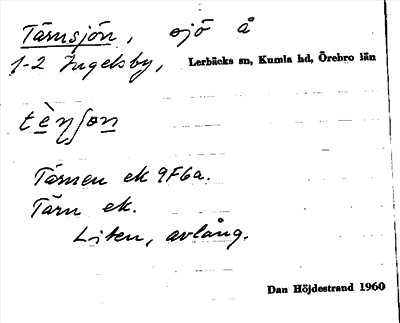 Tärnsjön, sjö å
1-2 Ingelsby, Lerbäcks sn, Kumla hd, Örebro län
tèn̡ʃon
Tärnen ek 9F6a.
Tärn ek.
Liten, avlång.
Dan Höjdestrand 1960